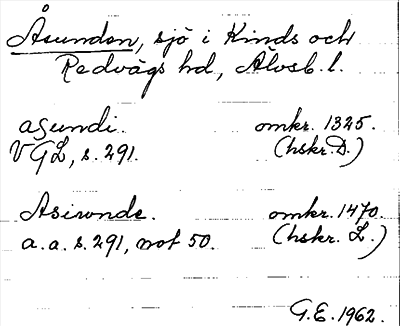 Åsunden, sjö i Kinds och
Redvägs hd, Älvsb. l.
asundi. omkr. 1325.
VGL, s. 291. (hskr. D.)
Asiwnde. omkr. 1470.
a. a. s. 291, not 50. (hskr. L.)
G.E. 1962.